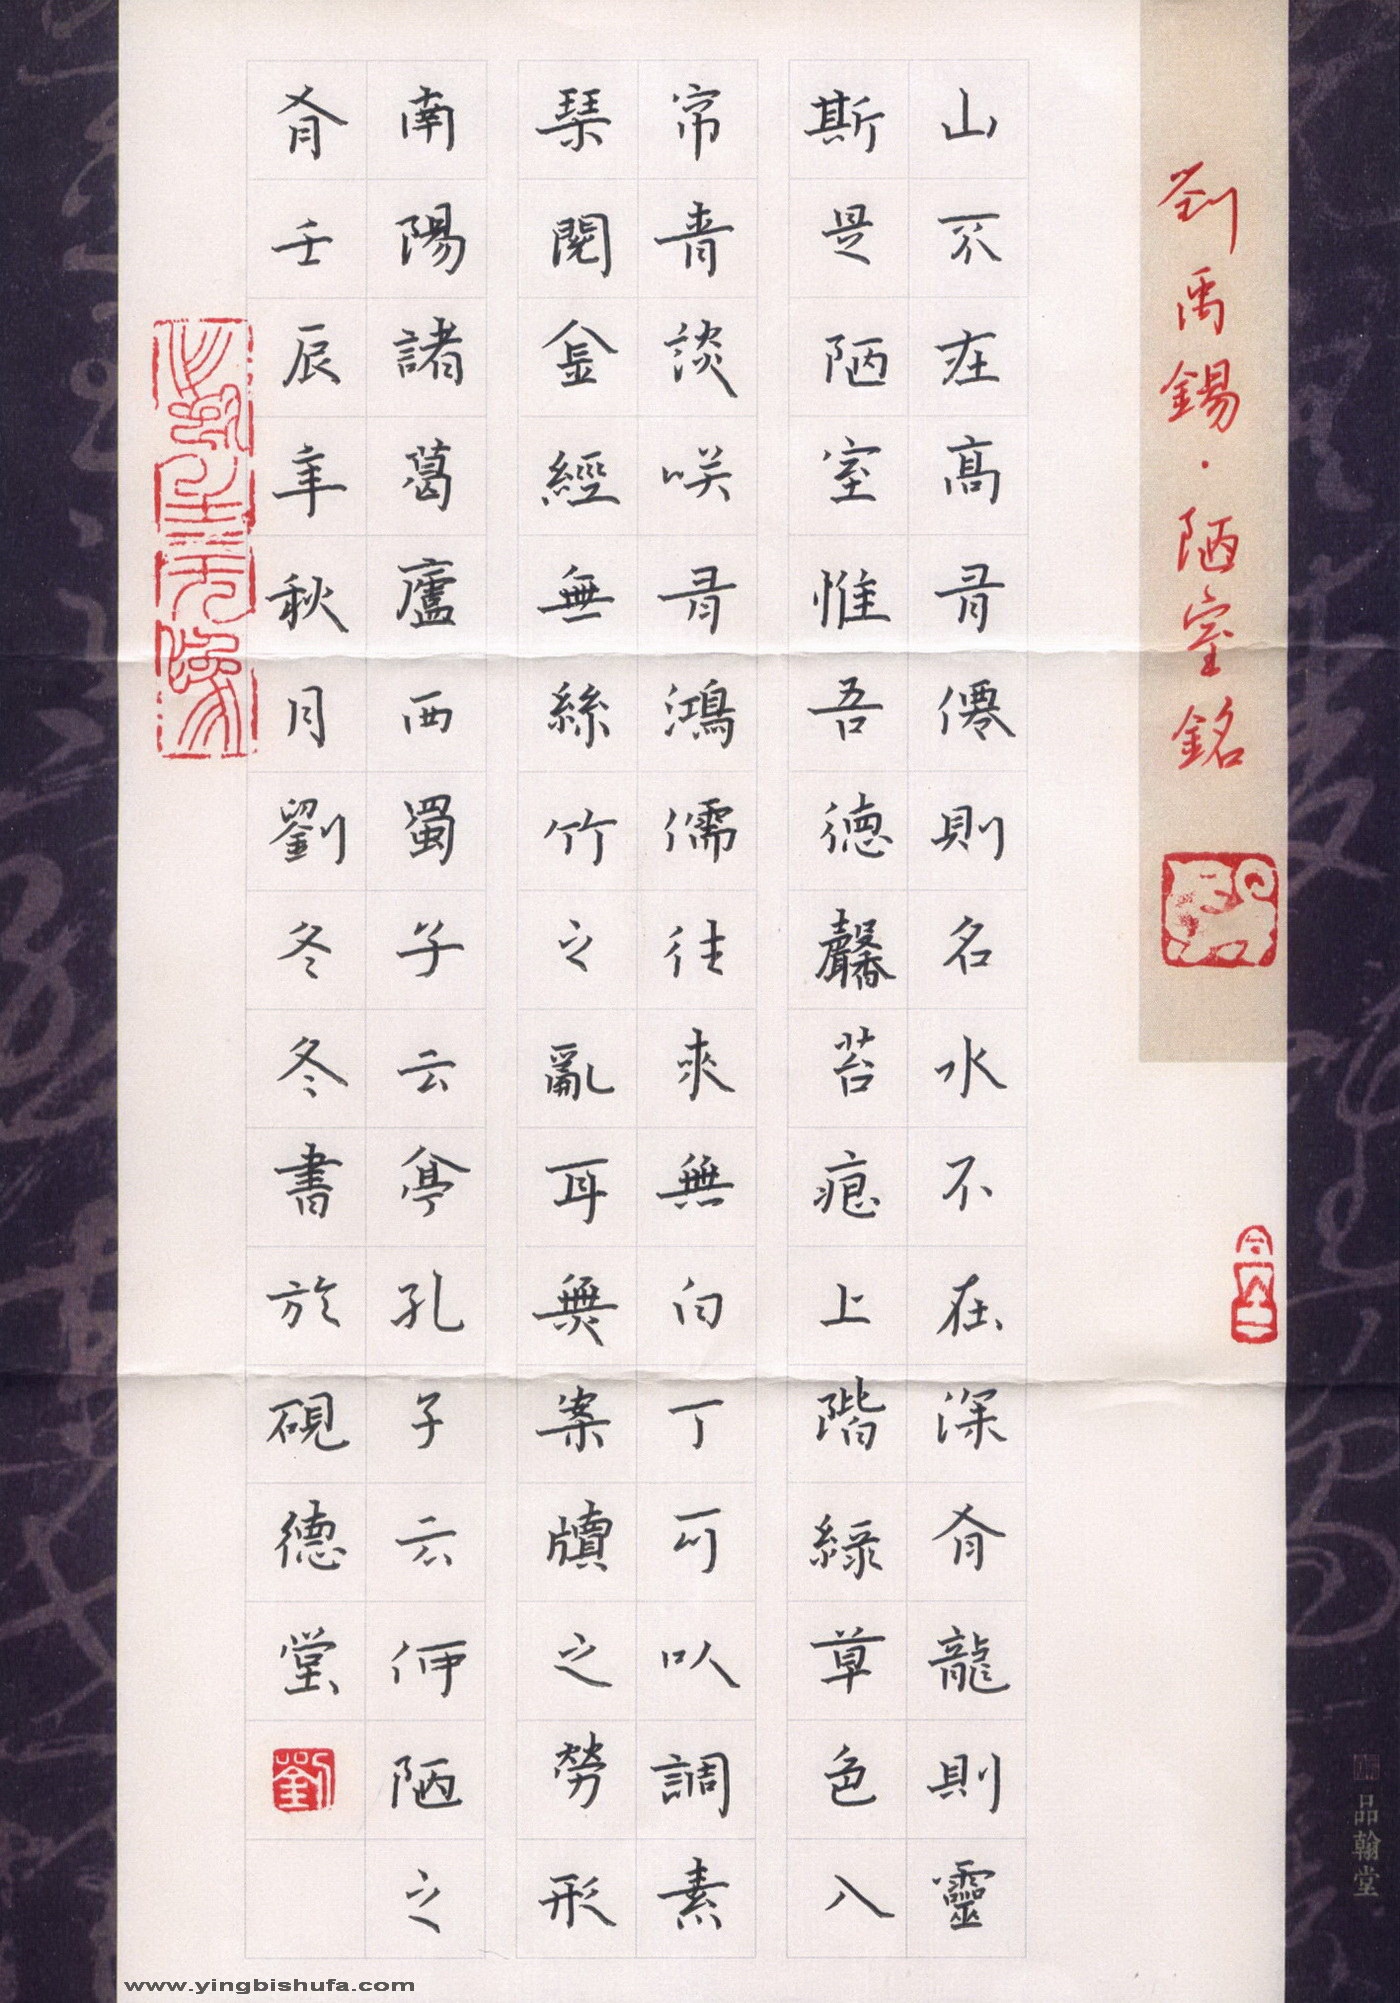 劉禹錫·陋室銘
山不在高有僊則名水不在深有龍則靈
斯是陋室惟吾德馨苔痕上階綠草色入
帘青談咲有鴻儒往來無白丁可以調素
琴閱金經無絲竹之亂耳無案牘之勞形
南陽諸葛廬西蜀子云亭孔子云何陋之
有壬辰年秋月劉冬冬書於硯德堂
劉
品翰堂
www.yingbishufa.com